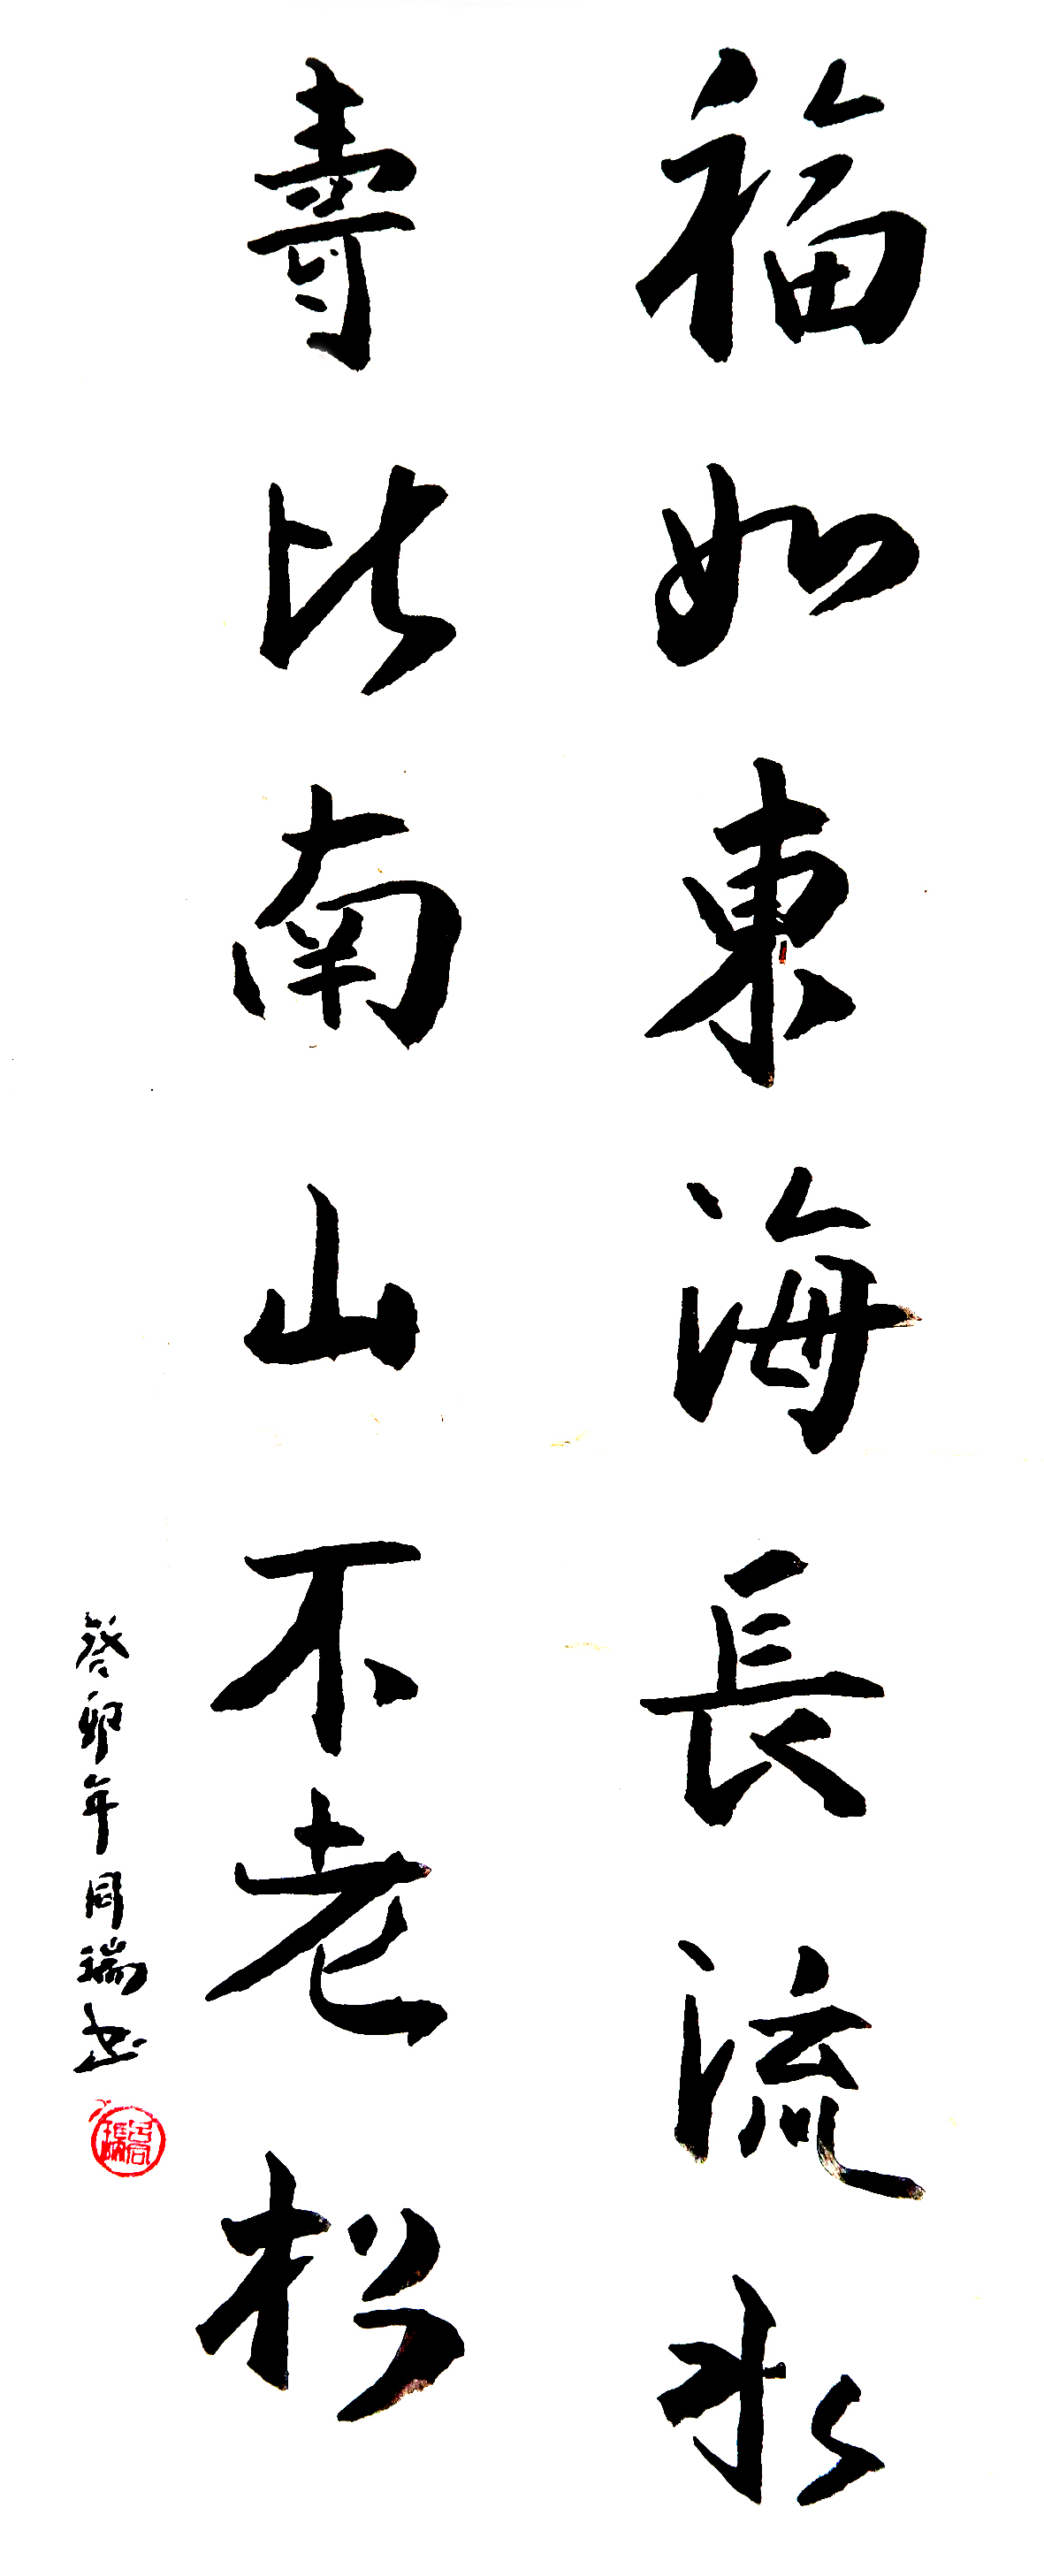 福如東海長流水
壽比南山不老松
癸卯年周瑞书